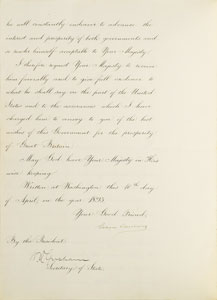 he will constantly endeavor to advance the
interest and prosperity of both governments and
so render himself acceptable to Your Majesty.
I therefore request Your Majesty to receive
him favorably and to give full credence to
what he shall say on the part of the United
States and to the assurances which I have
charged him to convey to you of the best
wishes of this Government for the prosperity
of Great Britain.
May God have Your Majesty in His
wise keeping.
Written at Washington this day
of April, in the year 1893.
Your Good Friend,
Grover Cleveland
By the President:
Secretary of State.